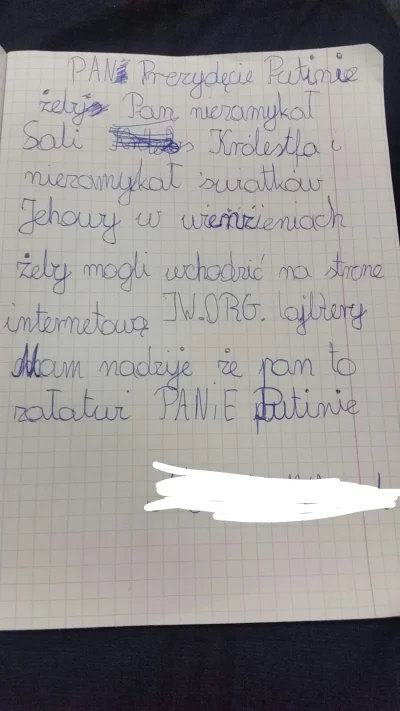 PANi Prezydęcie Putinie
żeby Pan niezamykał
Sali Królestfa i
niezamykał światków
Jehowy w wienzieniach
żeby mogli wchodzić na strone
internetową JW.ORG. lajbżery
Mam nadzije że pan to
załatwi PANiE Putinie